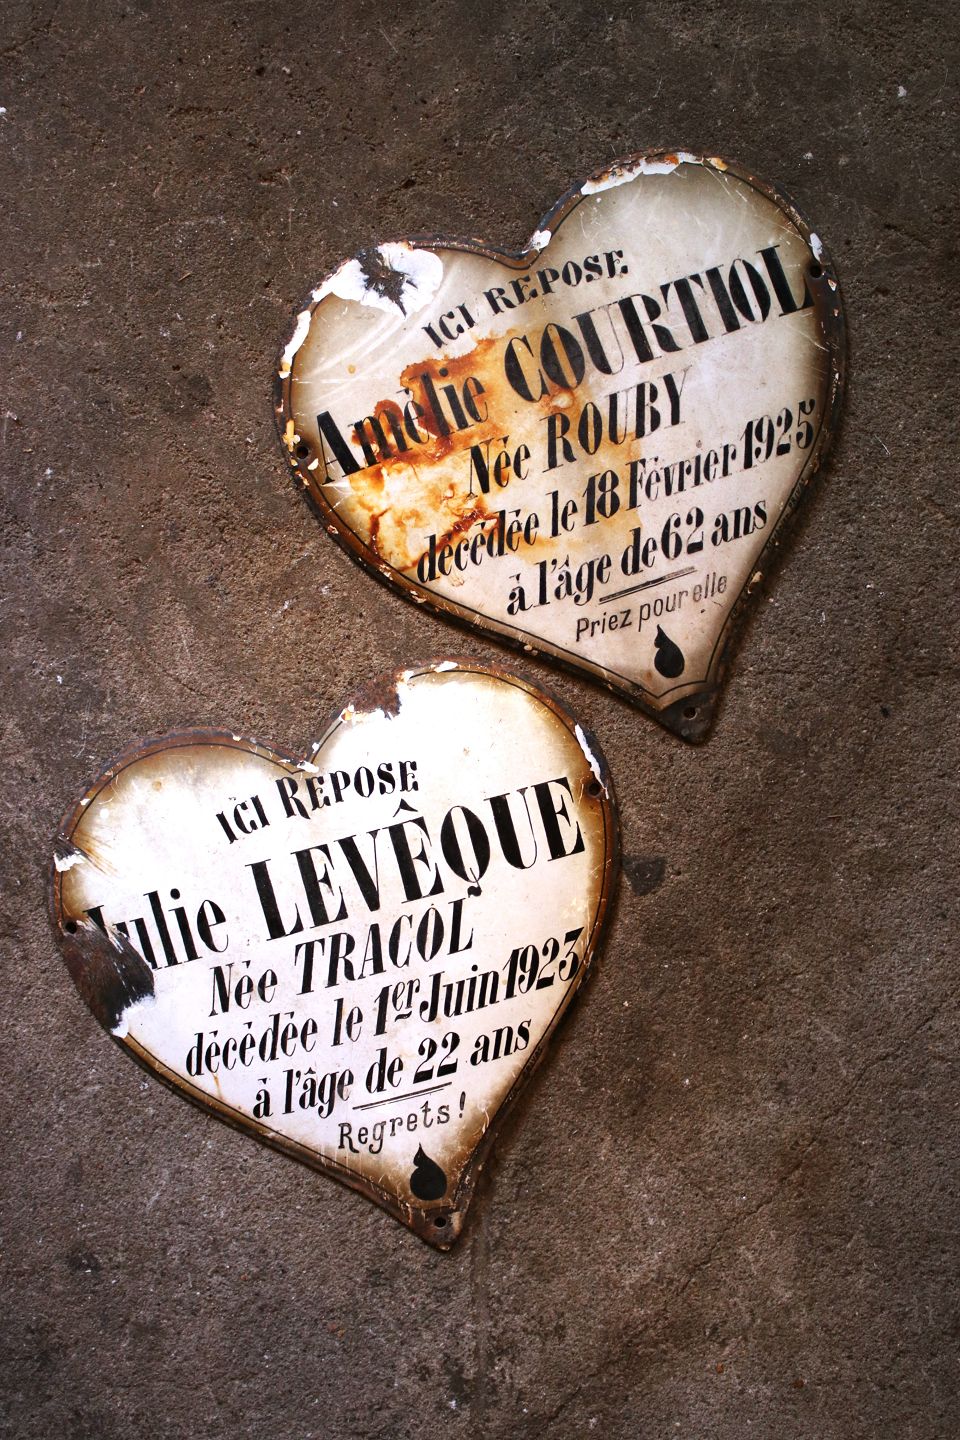 ICI REPOSE
Amélie COURTIOL
Née ROUBY
décédée le 18 Février 1925
à l'âge de 62 ans
Priez pour elle
ICI REPOSE
Julie LEVÊQUE
Née TRACOL
décédée le 1er Juin 1923
à l'âge de 22 ans
Regrets!